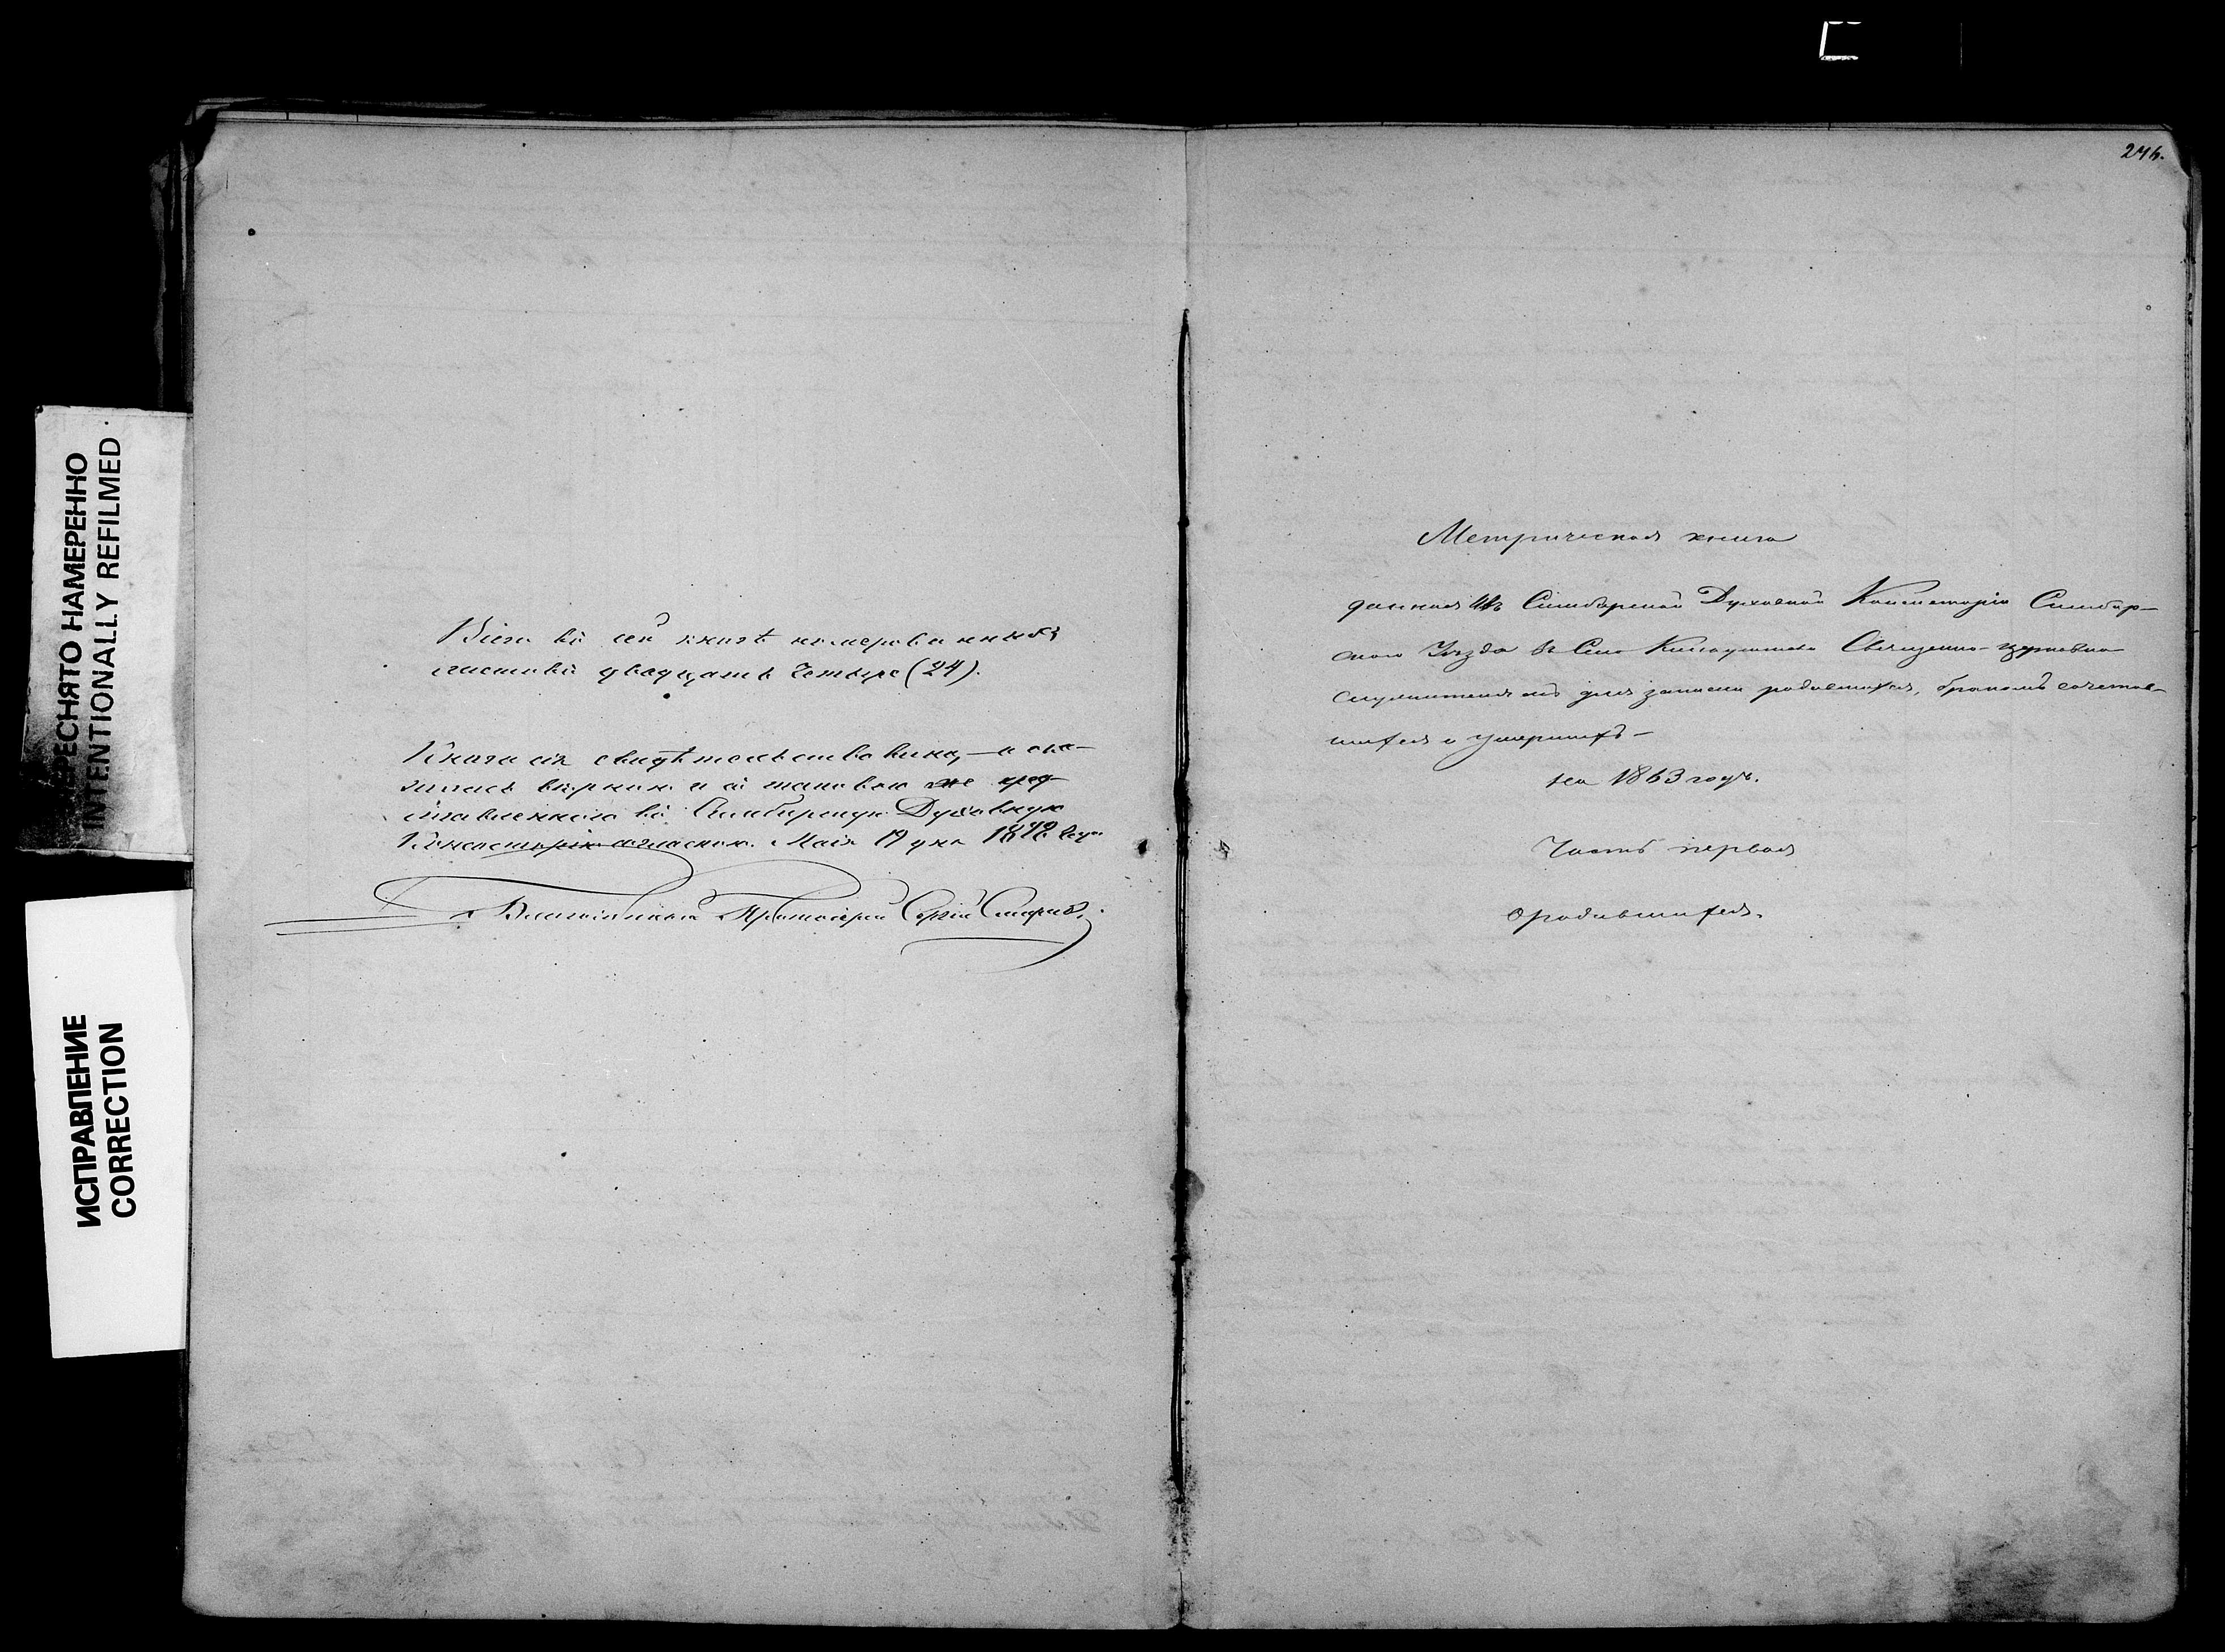 ПЕРЕСНЯТО НАМЕРЕННО
INTENTIONALLY REFILMED
ИСПРАВЛЕНИЕ
CORRECTION
Всего въ сей книгѣ номерованныхъ
листовъ двадцать четыре (24).
Книга сія свидѣтельствована, и ока-
залась вѣрною и съ таковою же пред-
ставленною въ Симбирскую Духовную
Консисторію согласною. Мая 19 дня 1872 года
Благочинный Протоіерей Сергій
246.
Метрическая книга
данная изъ Симбирской Духовной Консисторіи Симбир-
скаго Уѣзда въ Село Священно-церковно
служителямъ для записки родившихся, бракомъ сочетав-
шихся и умершихъ-
на 1863 годъ.
Часть первая
о родившихся.